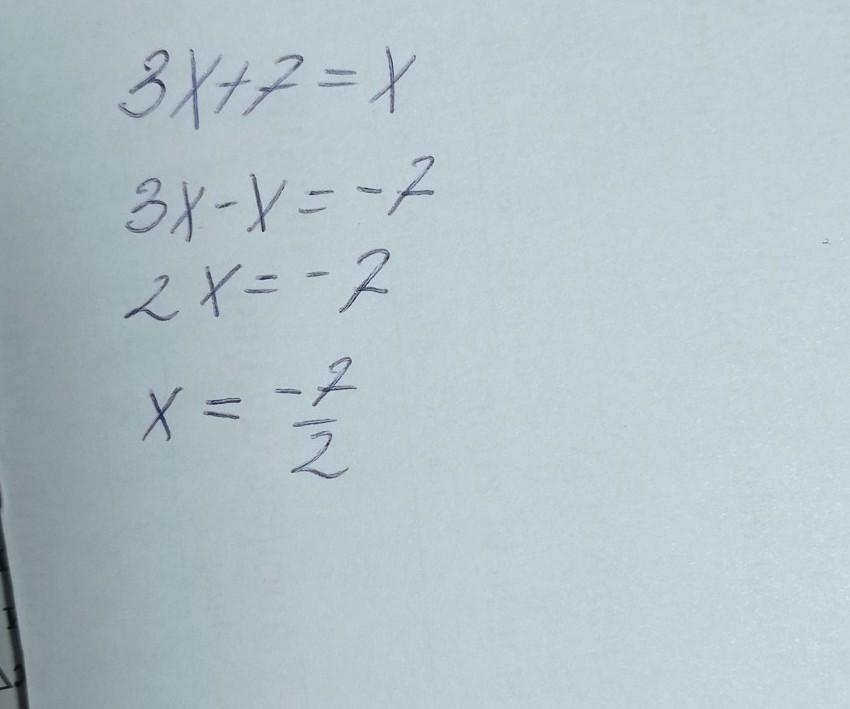 3x+7=x
3x-x=-7
2x=-7
x=-7/2